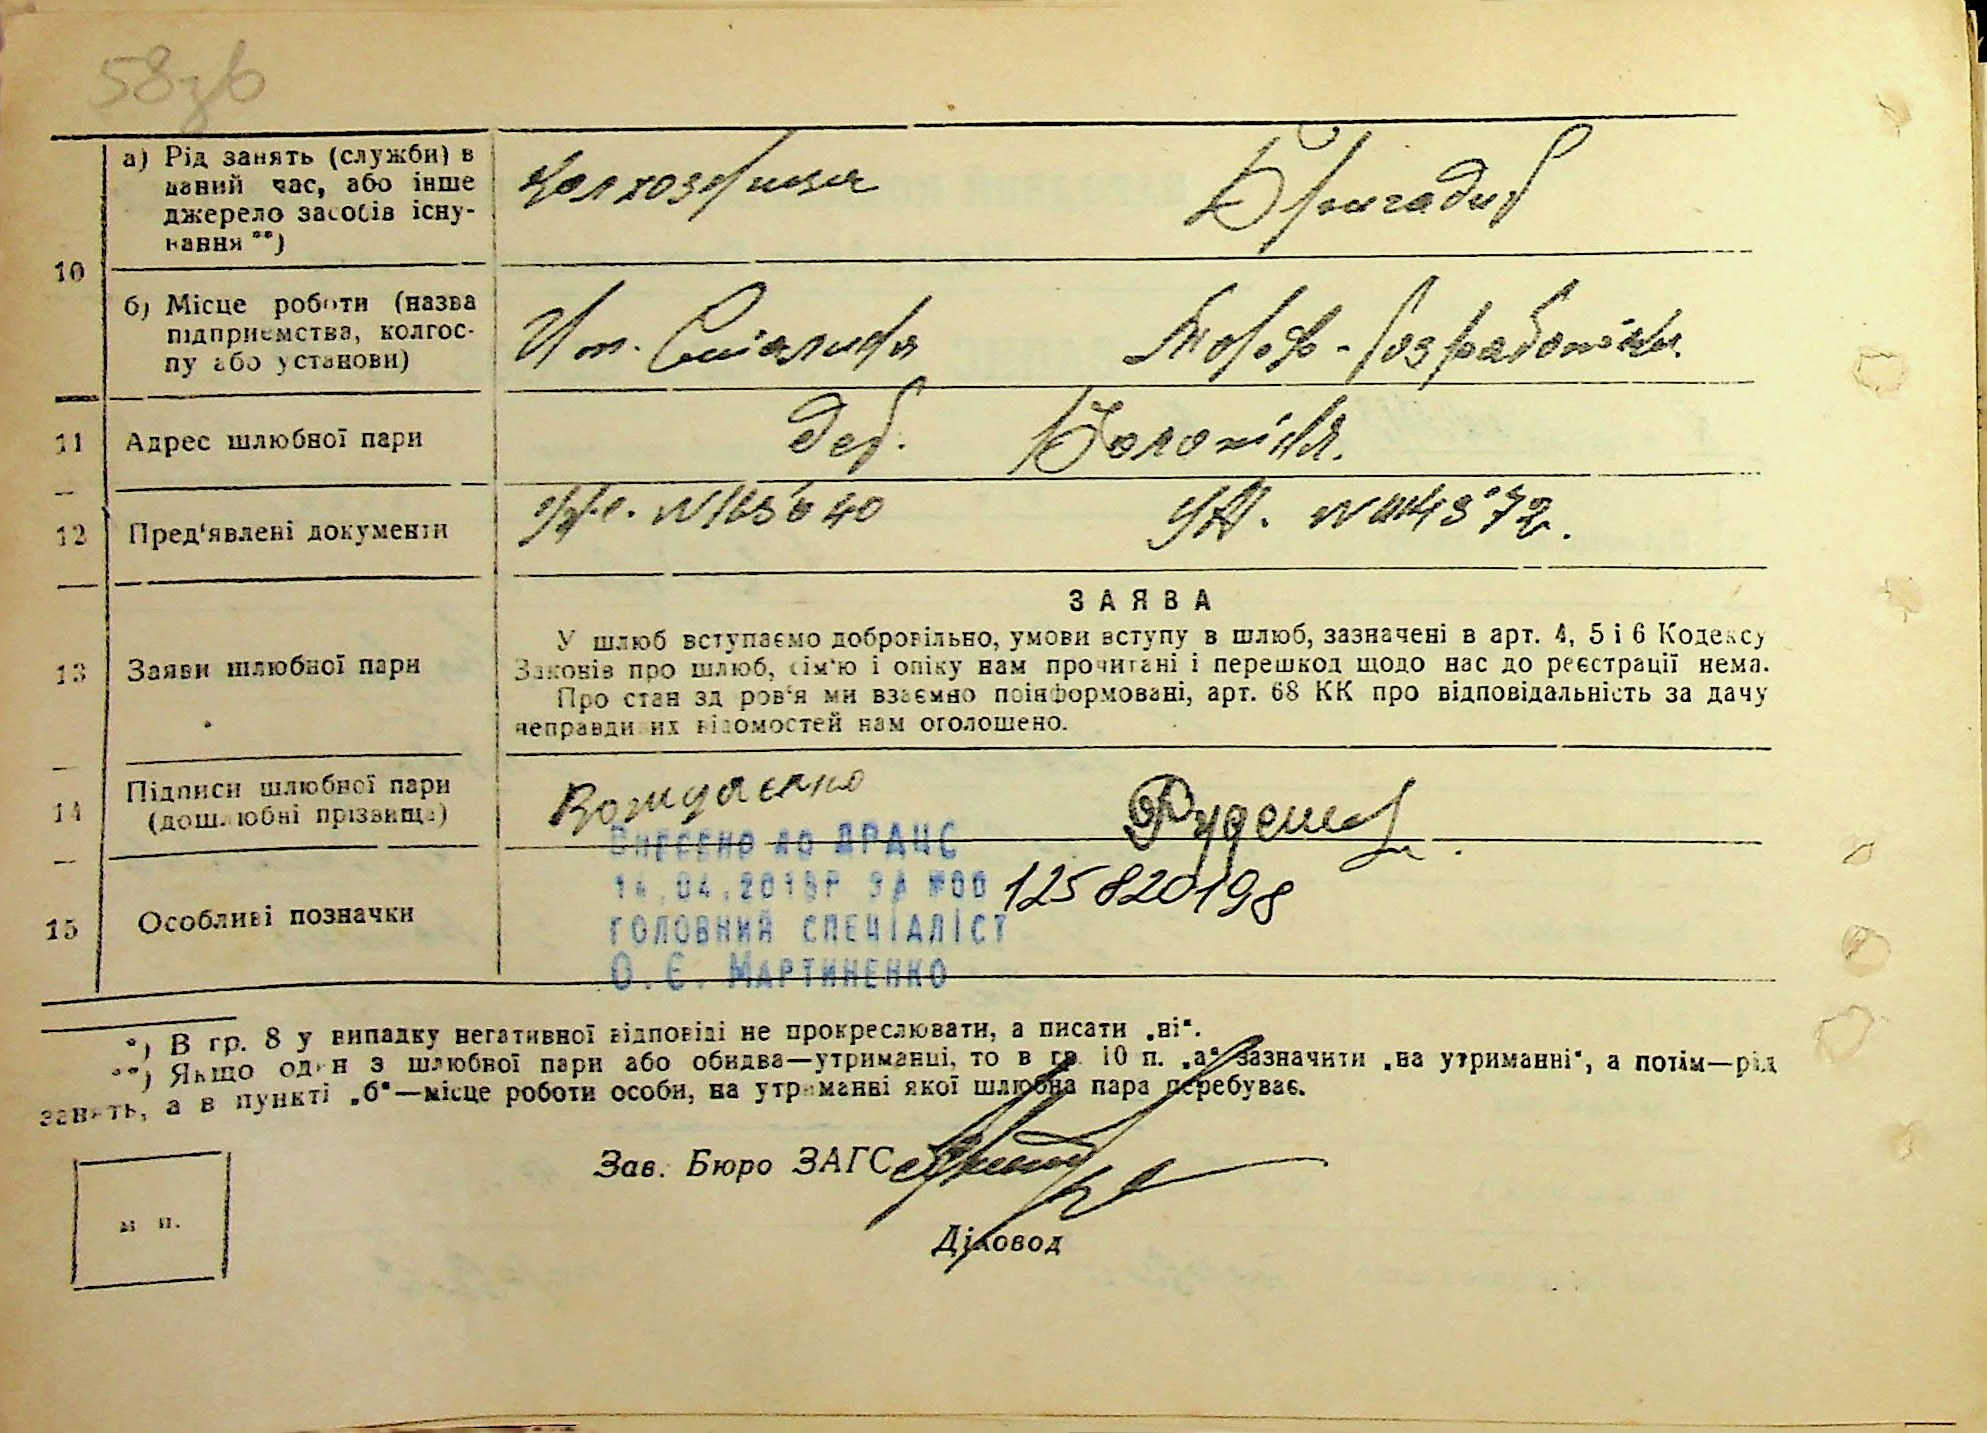 58зв
а) Рід занять (служби) в
даний час, або інше
джерело засобів існу-
вання **)
Бригадир
10
б) Місце роботи (назва
підприємства, колгос-
пу або установи)
Им. Сталина
11 Адрес шлюбної пари
дер.
12 Пред'явлені документи
ЗАЯВА
13 Заяви шлюбної пари
У шлюб вступаємо добровільно, умови вступу в шлюб, зазначені в арт. 4, 5 і 6 Кодексу
Законів про шлюб, сім'ю і опіку нам прочитані і перешкод щодо нас до реєстрації нема.
Про стан здоров'я ми взаємно поінформовані, арт. 68 КК про відповідальність за дачу
неправдивих відомостей нам оголошено.
14 Підписи шлюбної пари
(дошлюбні прізвища)
15 Особливі позначки
Внесено до ДРАЦС
14.04.2018р за №00 125820198
головний спеціаліст
О.Є. Мартиненко
*) В гр. 8 у випадку негативної відповіді не прокреслювати, а писати „ні“.
**) Якщо один з шлюбної пари або обидва—утриманці, то в гр. 10 п. „а“ зазначити „на утриманні“, а потім—рід
занять, а в пункті „б“—місце роботи особи, на утриманні якої шлюбна пара перебуває.
Зав. Бюро ЗАГС
м п.
Діловод